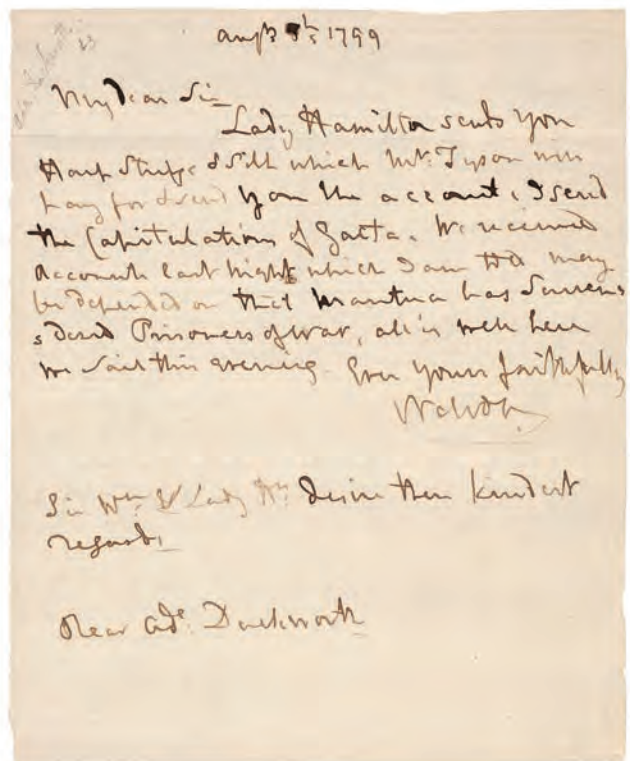 Augt: 5th: 1799
My Dear Sir
Lady Hamilton sends you
Harp Strings & Silk which Mr: Tyson will
pay for & send you the account, I send
the Capitulations of Gaeta. We received
accounts last night which I am told may
be depended on that Mantua has Surren
=dered Prisoners of War, all is well here
we sail this evening. Ever yours faithfully
Nelson
Sir Wm: & Lady Hn: desire their kindest
regards.
Rear Adl: Duckworth